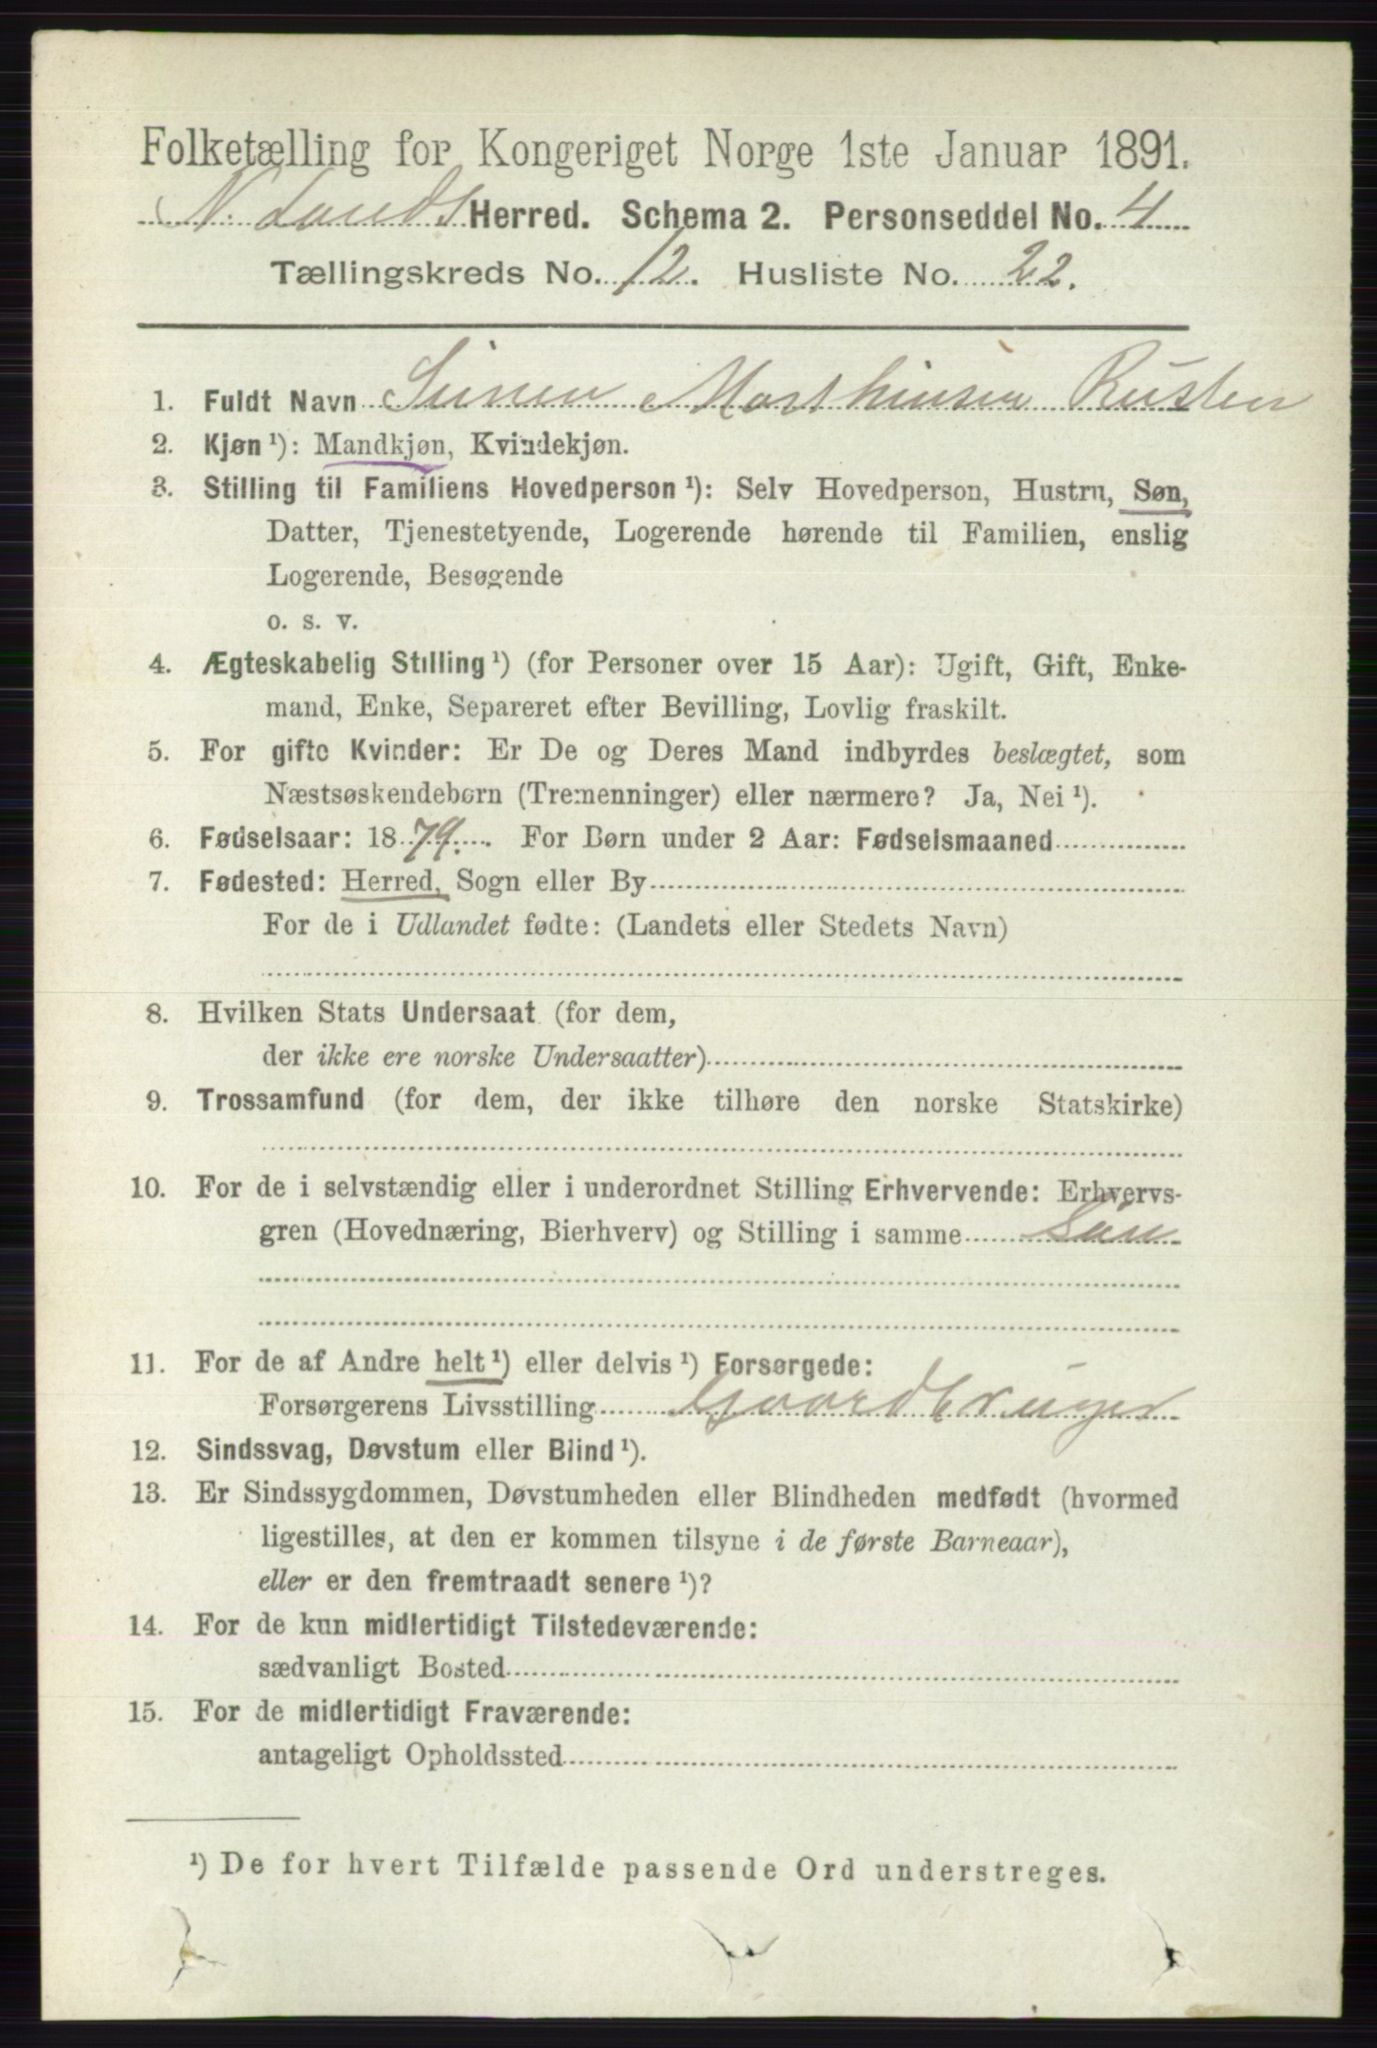 Folketælling for Kongeriget Norge 1ste Januar 1891.
N. Lands Herred. Schema 2. Personseddel No. 4
Tællingskreds No. 12. Husliste No. 22.
1. Fuldt Navn Simen Marthinsen Rusten
2. Kjøn ¹): Mandkjøn, Kvindekjøn.
3. Stilling til Familiens Hovedperson ¹): Selv Hovedperson, Hustru, Søn,
Datter, Tjenestetyende, Logerende hørende til Familien, enslig
Logerende, Besøgende
o. s. v.
4. Ægteskabelig Stilling ¹) (for Personer over 15 Aar): Ugift, Gift, Enke-
mand, Enke, Separeret efter Bevilling, Lovlig fraskilt.
5. For gifte Kvinder: Er De og Deres Mand indbyrdes beslægtet, som
Næstsøskendebørn (Tremenninger) eller nærmere? Ja, Nei ¹).
6. Fødselsaar: 1879. For Børn under 2 Aar: Fødselsmaaned
7. Fødested: Herred, Sogn eller By
For de i Udlandet fødte: (Landets eller Stedets Navn)
8. Hvilken Stats Undersaat (for dem,
der ikke ere norske Undersaatter)
9. Trossamfund (for dem, der ikke tilhøre den norske Statskirke)
10. For de i selvstændig eller i underordnet Stilling Erhvervende: Erhvervs-
gren (Hovednæring, Bierhverv) og Stilling i samme Søn
11. For de af Andre helt ¹) eller delvis ¹) Forsørgede:
Forsørgerens Livsstilling Gaardbruger
12. Sindssvag, Døvstum eller Blind ¹).
13. Er Sindssygdommen, Døvstumheden eller Blindheden medfødt (hvormed
ligestilles, at den er kommen tilsyne i de første Barneaar),
eller er den fremtraadt senere ¹)?
14. For de kun midlertidigt Tilstedeværende:
sædvanligt Bosted
15. For de midlertidigt Fraværende:
antageligt Opholdssted
¹) De for hvert Tilfælde passende Ord understreges.